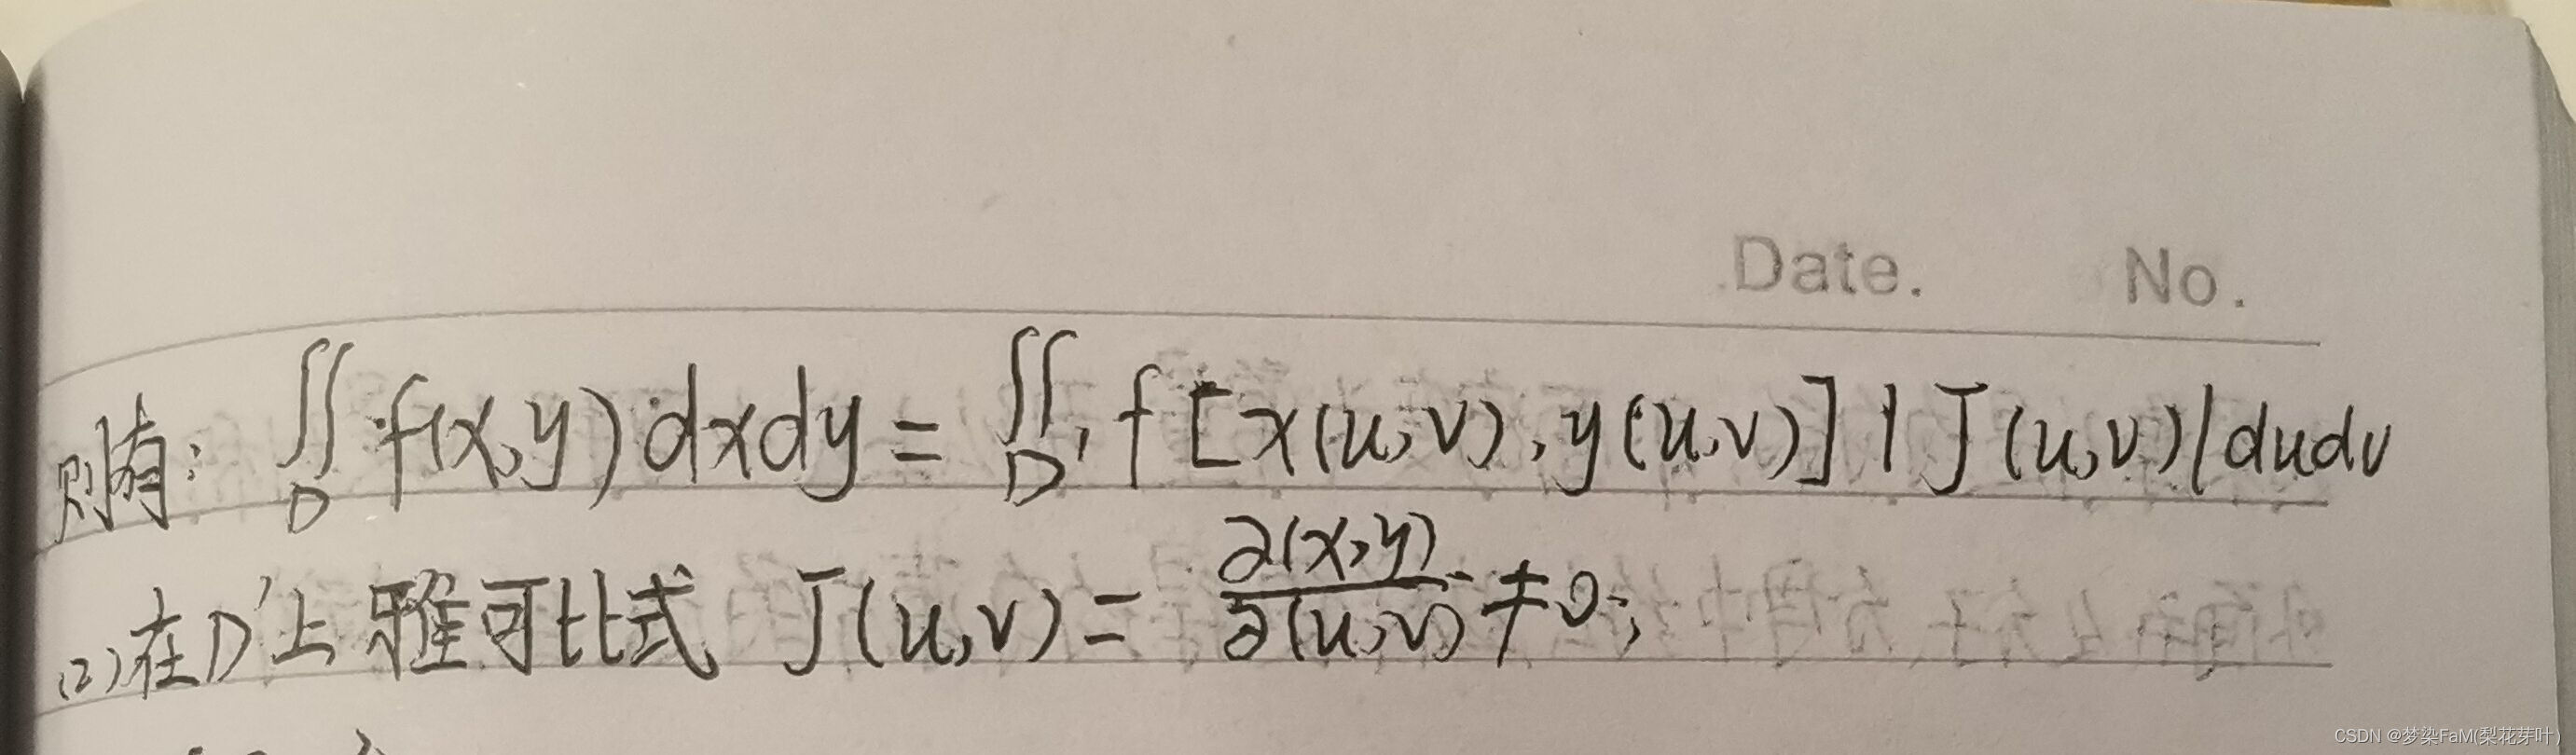 Date. No.
则有: ∬_D f(x,y)dxdy = ∬_D' f[x(u,v),y(u,v)]|J(u,v)|dudv
(2)在D'上雅可比式 J(u,v) = ∂(x,y)/∂(u,v) ≠0;
CSDN @梦染FaM(梨花芽叶)